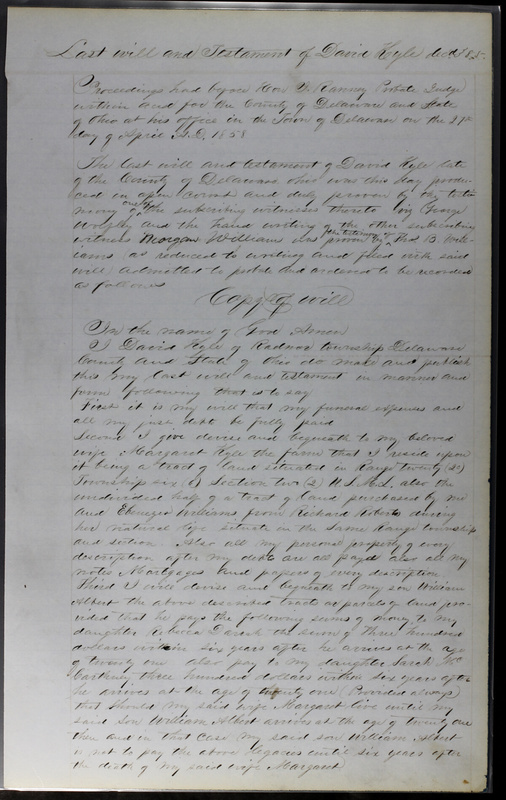 Last will and Testament of David Kyle decd
Proceedings had before Hon Ranney Probate Judge
within and for the County of Delaware and State
of Ohio at his office in the Town of Delaware on the
day of April A.D. 1858
The last will and testament of David Kyle late
of the County of Delaware Ohio was this day produ-
ced in open Court and duly proven by the testi
mony one of the subscribing witnesses thereto viz George
Wolfley and the hand writing of the other subscribing
witness Morgan Williams was proven by the testimony of Thos B. Will-
iams as reduced to writing and filed with said
will admitted to probate and ordered to be recorded
as follows
Copy of will
In the name of God Amen
I David Kyle of Radnor township Delaware
County and State of Ohio do make and publish
this my last will and testament in manner and
form following that is to say
First it is my will that my funeral expenses and
all my just debts be fully paid
Second I give devise and bequeath to my beloved
wife Margaret Kyle the farm that I reside upon
it being a tract of land situated in Range twenty (20)
Township six (6) Section two (2) U.S.M.L. also the
undivided half of a tract of land purchased by me
and Ebenezer Williams from Richard Roberts during
her natural life situate in the same Range township
and section. Also all my personal property of every
description after my debts are all payed also all my
notes Mortgages and papers of every description
Third I will devise and bequeath to my son William
Albert the above described tracts or parcels of land pro-
vided that he pays the following sums of money to my
daughter Rebecca the sum of three hundred
dollars within six years after he arrives at the age
of twenty one also pay to my daughter Sarah Mc
Cartney three hundred dollars within six years after
he arrives at the age of twenty one (Provided always
that should my said wife Margaret live until my
said son William Albert arrives at the age of twenty one
then and in that case my said son William Albert
is not to pay the above legacies until six years after
the death of my said wife Margaret